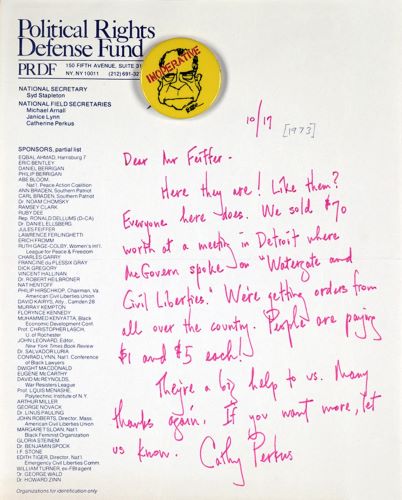 Political Rights
Defense Fund
PRDF
150 FIFTH AVENUE, SUITE 31
NY, NY 10011 (212) 691-32
INOPERATIVE
NATIONAL SECRETARY
Syd Stapleton
NATIONAL FIELD SECRETARIES
Michael Arnall
Janice Lynn
Catherine Perkus
SPONSORS, partial list
EQBAL AHMAD, Harrisburg 7
ERIC BENTLEY
DANIEL BERRIGAN
PHILIP BERRIGAN
ABE BLOOM,
Nat'l. Peace Action Coalition
ANN BRADEN, Southern Patriot
CARL BRADEN, Southern Patriot
Dr. NOAM CHOMSKY
RAMSEY CLARK
RUBY DEE
Rep. RONALD DELLUMS (D-CA)
Dr. DANIEL ELLSBERG
JULES FEIFFER
LAWRENCE FERLINGHETTI
ERICH FROMM
RUTH GAGE-COLBY, Women's Int'l.
League for Peace & Freedom
CHARLES GARRY
FRANCINE du PLESSIX GRAY
DICK GREGORY
VINCENT HALLINAN
Dr. ROBERT HEILBRONER
NAT HENTOFF
PHILIP HIRSCHKOP, Chairman, Va.
American Civil Liberties Union
DAVID KAIRYS, Atty., Camden 28
MURRAY KEMPTON
FLORYNCE KENNEDY
MUHAMMED KENYATTA, Black
Economic Development Conf.
Prof. CHRISTOPHER LASCH,
U. of Rochester
JOHN LEONARD, Editor,
New York Times Book Review
Dr. SALVADOR LURIA
CONRAD LYNN, Nat'l. Conference
of Black Lawyers
DWIGHT MACDONALD
EUGENE McCARTHY
DAVID McREYNOLDS,
War Resisters League
Prof. LOUIS MENASHE,
Polytechnic Institute of N.Y.
ARTHUR MILLER
GEORGE NOVACK
Dr. LINUS PAULING
JOHN ROBERTS, Director, Mass.
American Civil Liberties Union
MARGARET SLOAN, Nat'l.
Black Feminist Organization
GLORIA STEINEM
Dr. BENJAMIN SPOCK
I.F. STONE
EDITH TIGER, Director, Nat'l
Emergency Civil Liberties Comm.
WILLIAM TURNER, ex-FBI agent
Dr. GEORGE WALD
Dr. HOWARD ZINN
Organizations for identification only
10/17
[1973]
Dear Mr Feiffer -
Here they are! Like them?
Everyone here does. We sold $70
worth at a meeting in Detroit where
McGovern spoke on "Watergate and
Civil Liberties." We're getting orders from
all over the country. People are paying
$1 and $5 each!
They're a big help to us. Many
thanks again. If you want more, let
us know. Cathy Perkus